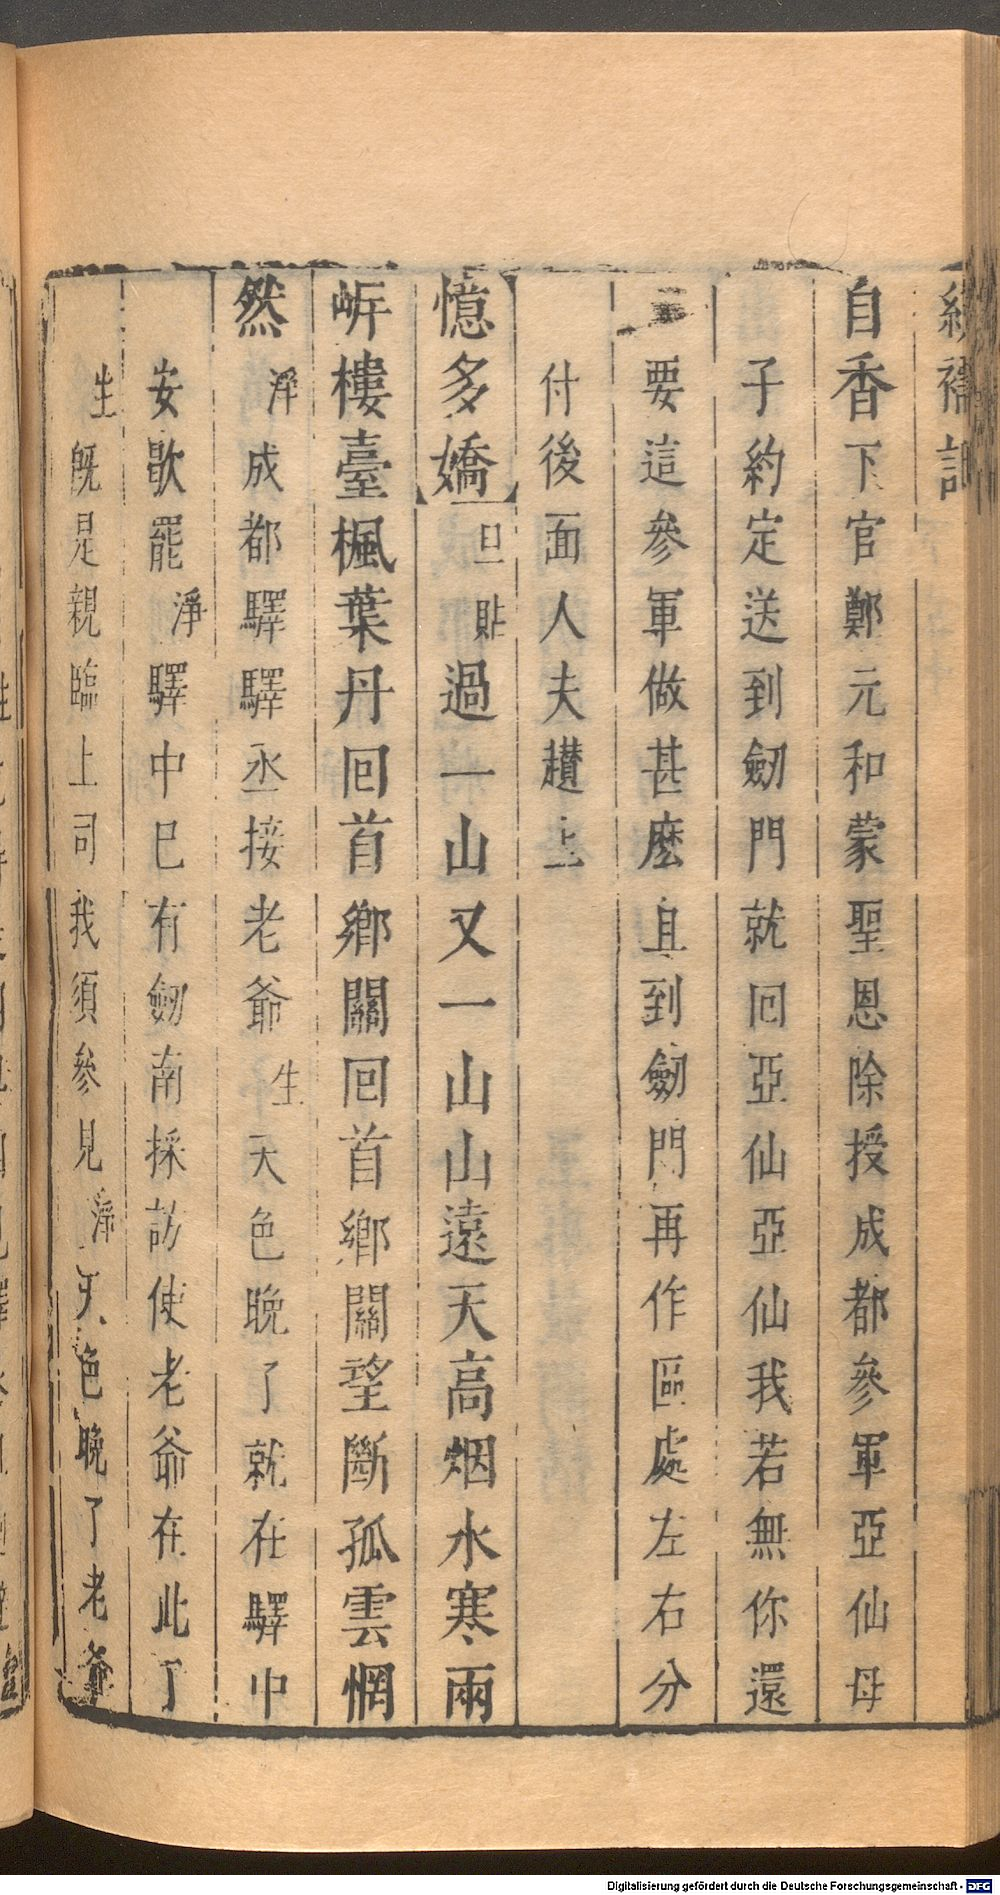 繡襦記
自香下官鄭元和蒙聖恩除授成都參軍亞仙母
子約定送到劒門就回亞仙亞仙我若無你還
要這參軍做甚麽且到劒門再作區處左右分
付後面人夫趲上
憶多嬌旦貼過一山又一山山遠天高烟水寒兩
岍樓臺楓葉丹回首鄉關回首鄉關望斷孤雲惘
然淨成都驛驛丞接老爺生天色晚了就在驛中
安歇罷淨驛中巳有劒南採訪使老爺在此了
生旣是親臨上司我須參見淨天色晚了老爺
Digitalisierung gefördert durch die Deutsche Forschungsgemeinschaft - DFG